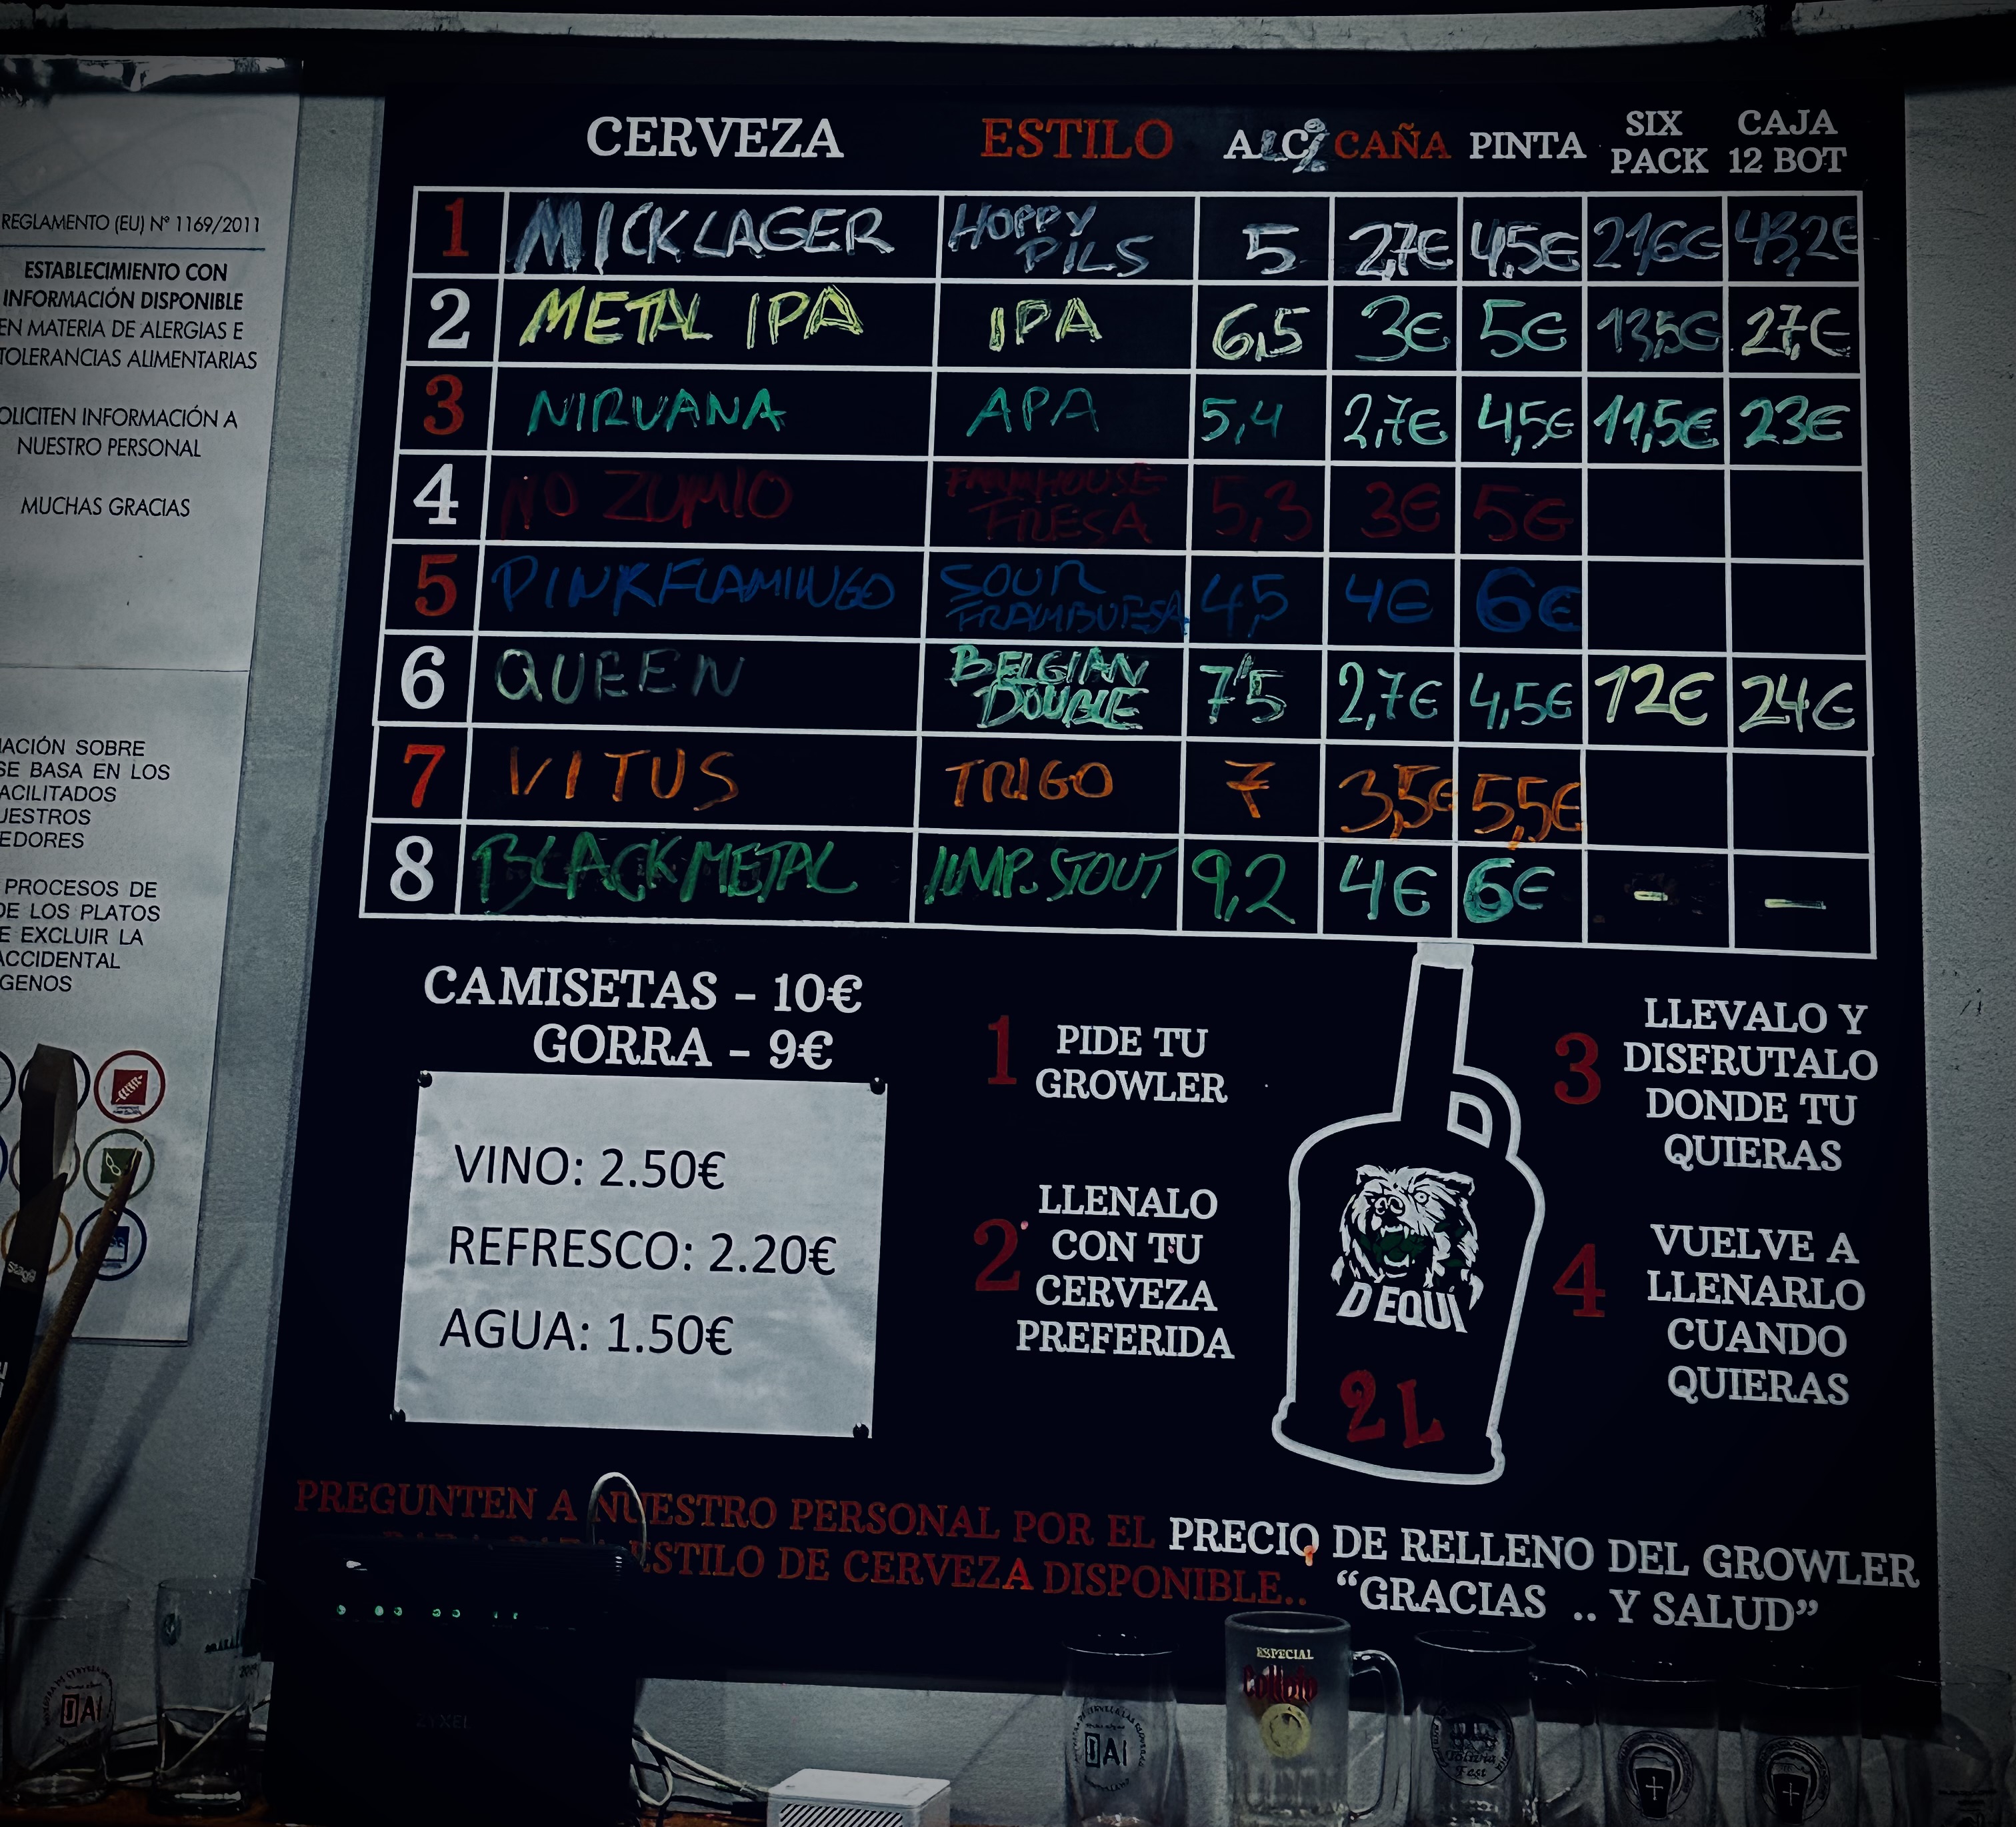 REGLAMENTO (EU) Nº 1169/2011
ESTABLECIMIENTO CON
INFORMACIÓN DISPONIBLE
EN MATERIA DE ALERGIAS E
TOLERANCIAS ALIMENTARIAS
OLICITEN INFORMACIÓN A
NUESTRO PERSONAL
MUCHAS GRACIAS
MACIÓN SOBRE
SE BASA EN LOS
ACILITADOS
UESTROS
EDORES
PROCESOS DE
DE LOS PLATOS
E EXCLUIR LA
ACCIDENTAL
GENOS
CERVEZA ESTILO ALC CAÑA PINTA SIX PACK CAJA 12 BOT
1 MICKLAGER HOPPY PILS 5 2,7€ 4,5€ 21,6€ 43,2€
2 METAL IPA IPA 6,5 3€ 5€ 13,5€ 27,€
3 NIRVANA APA 5,4 2,7€ 4,5€ 11,5€ 23€
4 NO ZUMIO FARMHOUSE FRESA 5,3 3€ 5€
5 PINKFLAMINGO SOUR FRAMBUESA 4,5 4€ 6€
6 QUEEN BELGIAN DOUBLE 7'5 2,7€ 4,5€ 12€ 24€
7 VITUS TRIGO 7 3,5€ 5,5€
8 BLACK METAL IMP. STOUT 9,2 4€ 6€ - -
CAMISETAS - 10€
GORRA - 9€
VINO: 2.50€
REFRESCO: 2.20€
AGUA: 1.50€
1 PIDE TU
GROWLER
2 LLENALO
CON TU
CERVEZA
PREFERIDA
D'EQUÍ
2L
3 LLEVALO Y
DISFRUTALO
DONDE TU
QUIERAS
4 VUELVE A
LLENARLO
CUANDO
QUIERAS
PREGUNTEN A NUESTRO PERSONAL POR EL PRECIO DE RELLENO DEL GROWLER
ESTILO DE CERVEZA DISPONIBLE.. “GRACIAS .. Y SALUD”
ZYXEL
JAI
JAI
ESPECIAL
Colloto
Fest